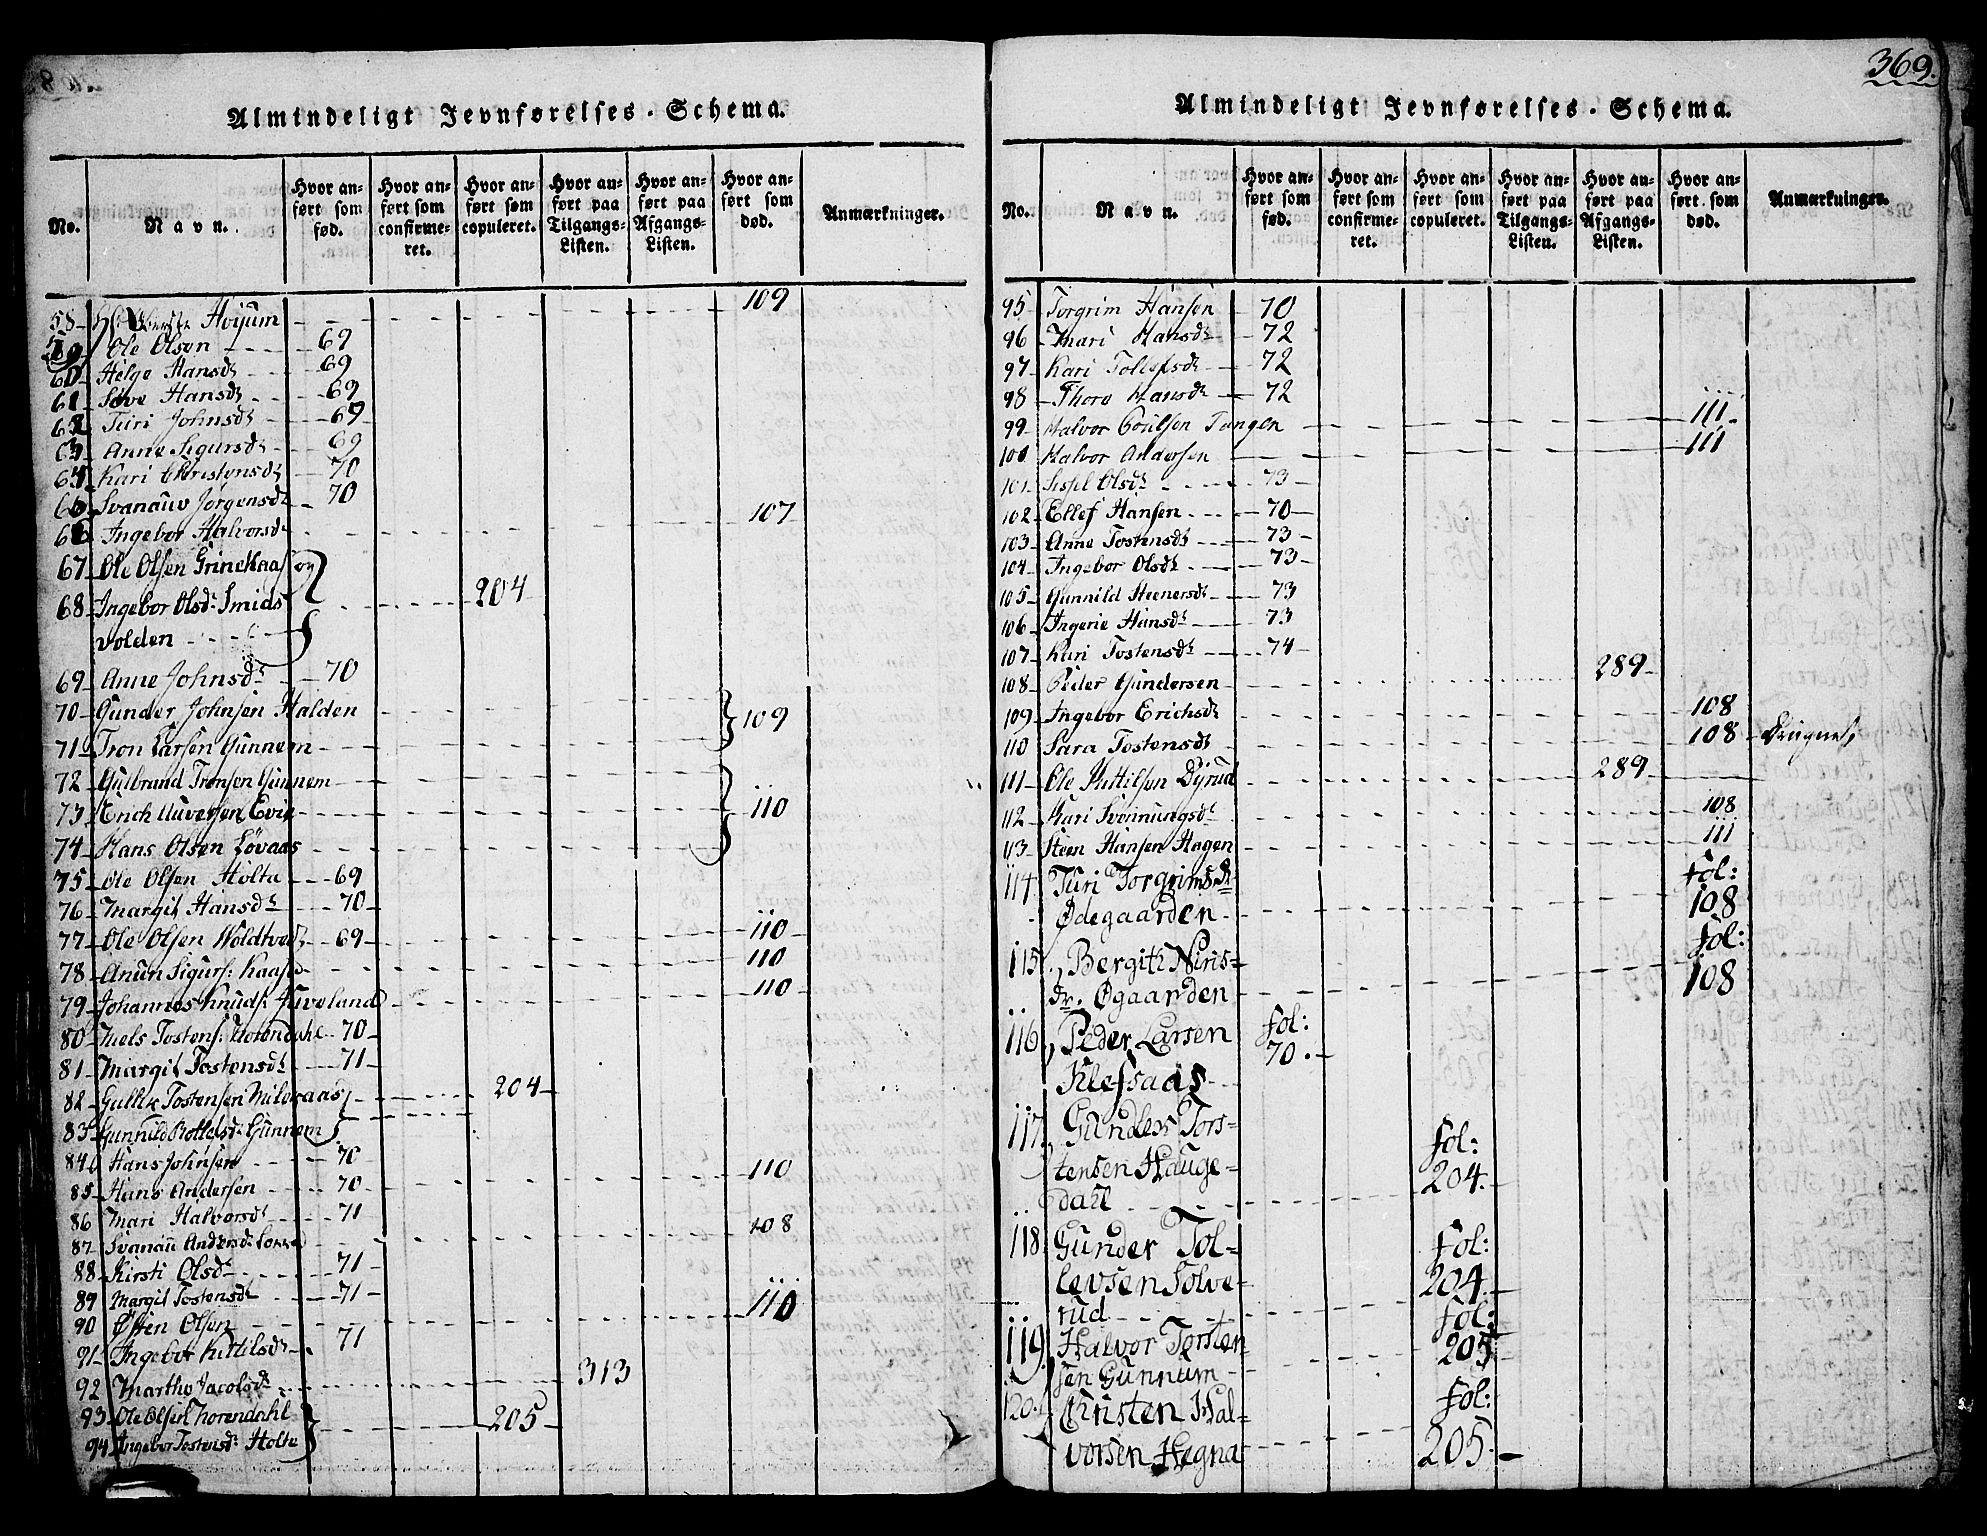 Almindeligt Jevnførelses-Schema.
No. Navn. Hvor anført som fød. Hvor anført som confirmeret. Hvor anført som copuleret. Hvor anført paa Tilgangs-Listen. Hvor anført paa Afgangs-Listen. Hvor anført som død. Anmærkninger.
58 Hoyum 109
59 Ole Olson 69
60 Helge Hansdr 69
61 Hansdr 69
62 Turi Johnsdr 69
63 Anne Sigursdr 69
64 Kari Christensdr 70
65 Svanauw Jørgensdr 70
66 Ingebor Halvorsdr 107
67 Ole Olsen Grinekaas og
68 Ingebor Olsdr Smids 204
volden
69 Anne Johnsdr 70
70 Gunder Johnsen Halden 109
71 Tron Larsen Gunnem
72 Gulbrand Tronsen Gunnem
73 Erich Auversen Evie 110
74 Hans Olsen Løvaas
75 Ole Olsen Holta 69
76 Margit Hansdr 70
77 Ole Olsen Woldtved 69 110
78 Anun Sigurs: Kaasa 110
79 Johannes Knuds. 110
80 Niels Tostens: 70
81 Margit Tostensdr 71
82 Gullik Tostensen 204
83 Gunnild Gunnem
84 Hans Johnsen 70
85 Hans Andersen 70 110
86 Mari Halvorsdr 71
87 Svanau Andersdr 108
88 Kirsti Olsdr 71
89 Margit Tostensdr 71
90 Østen Olsen 110
91 Ingebor Kittilsdr 71
92 Marthe Jacobsdr 313
93 Ole Olsen 205
94 Ingebor Tostensdr Holte
369.
Almindeligt Jevnførelses-Schema.
No. Navn. Hvor anført som fød. Hvor anført som confirmeret. Hvor anført som copuleret. Hvor anført paa Tilgangs-Listen. Hvor anført paa Afgangs-Listen. Hvor anført som død. Anmærkninger.
95 Torgrim Hansen 70
96 Mari Hansdr 72
97 Kari Tollefsdr 72
98 Thore Hansdr 72
99 Halvor Poulsen Tangen 111
100 Halvor Andersen 111
101 Sissel Olsdr 73
102 Ellef Hansen 70
103 Anne Tostensdr 73
104 Ingebor Olsdr 73
105 Gunnild Steenersdr 73
106 Ingerie Hansdr 73
107 Kari Tostensdr 74
108 Peder Gundersen 289
109 Ingebor Erichsdr 108
110 Sara Tostensdr 108
111 Ole Kittilsen Dyrud 289
112 Kari Svennungsdr 108
113 Steen Hansen Hagen 111
114 Turi Torgrimsdr fol:
Ødegaarden 108
115 Bergith Niris- fol:
dr. Øgaarden 108
116 Peder Larsen fol:
Klefsaas 70
117 Gunder Tors- fol:
tensen Hauge- 204
dahl
118 Gunder Tol- fol:
levsen Solve- 204
rud fol:
119 Halvor Torsten 205
sen Gunnum
120 Christen Hal- fol:
vorsen Hegna 205